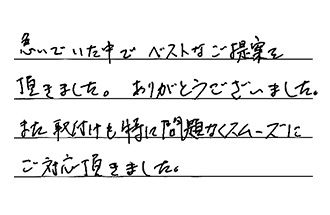 急いでいた中で ベストなご提案を
頂きました。 ありがとうございました。
また取付けも特に問題なくスムーズに
ご対応頂きました。